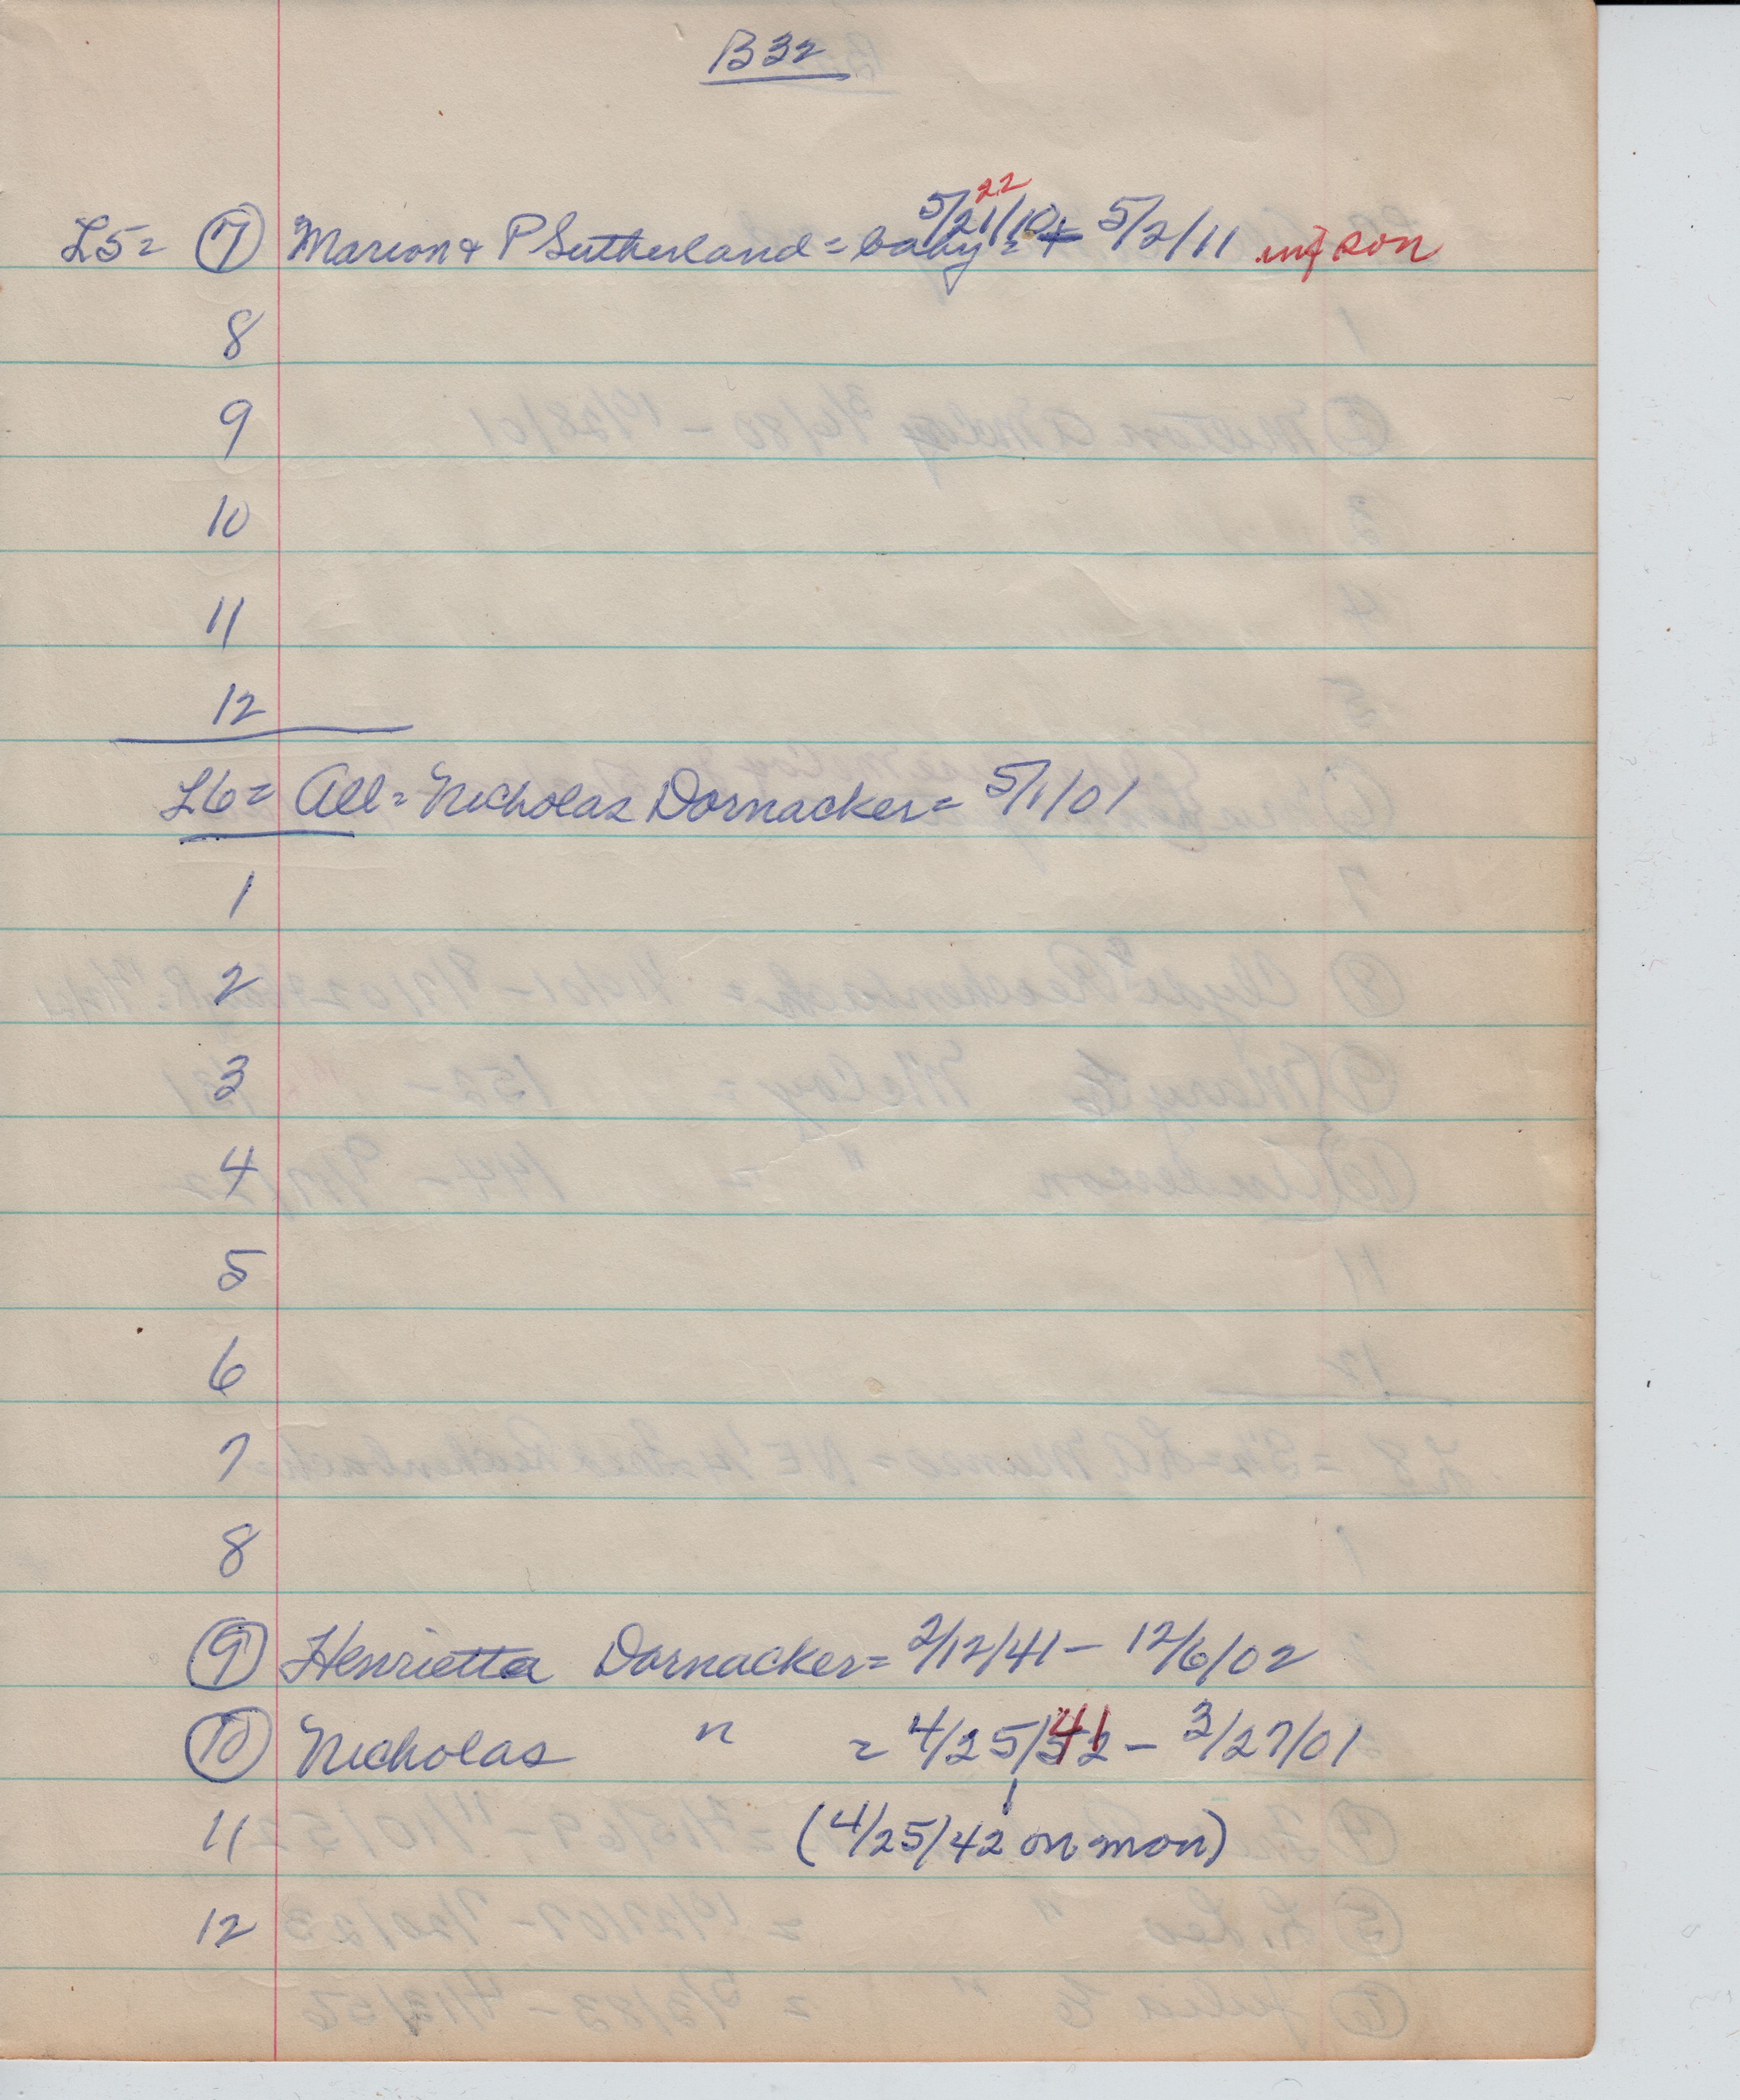 B32
22
L5= 7 Marion & P Sutherland = baby = 5/21/10 5/2/11 inf son
8
9
10
11
12
L6= All = Nicholas Dornacker = 5/1/01
1
2
3
4
5
6
7
8
9 Henrietta Dornacker = 2/12/41 - 12/6/02
10 Nicholas " = 4/25/41 - 3/27/01
11 (4/25/42 on mon)
12